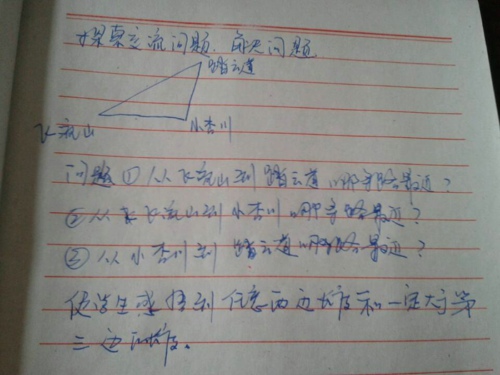 探索交流问题,解决问题
踏云道
飞流山
小香川
问题①从飞流山到踏云道哪条路最近?
②从飞流山到小香川哪条路最近?
③从小香川到踏云道哪路最近?
使学生感悟到任意两边长度和一定大于第
三边的长度。